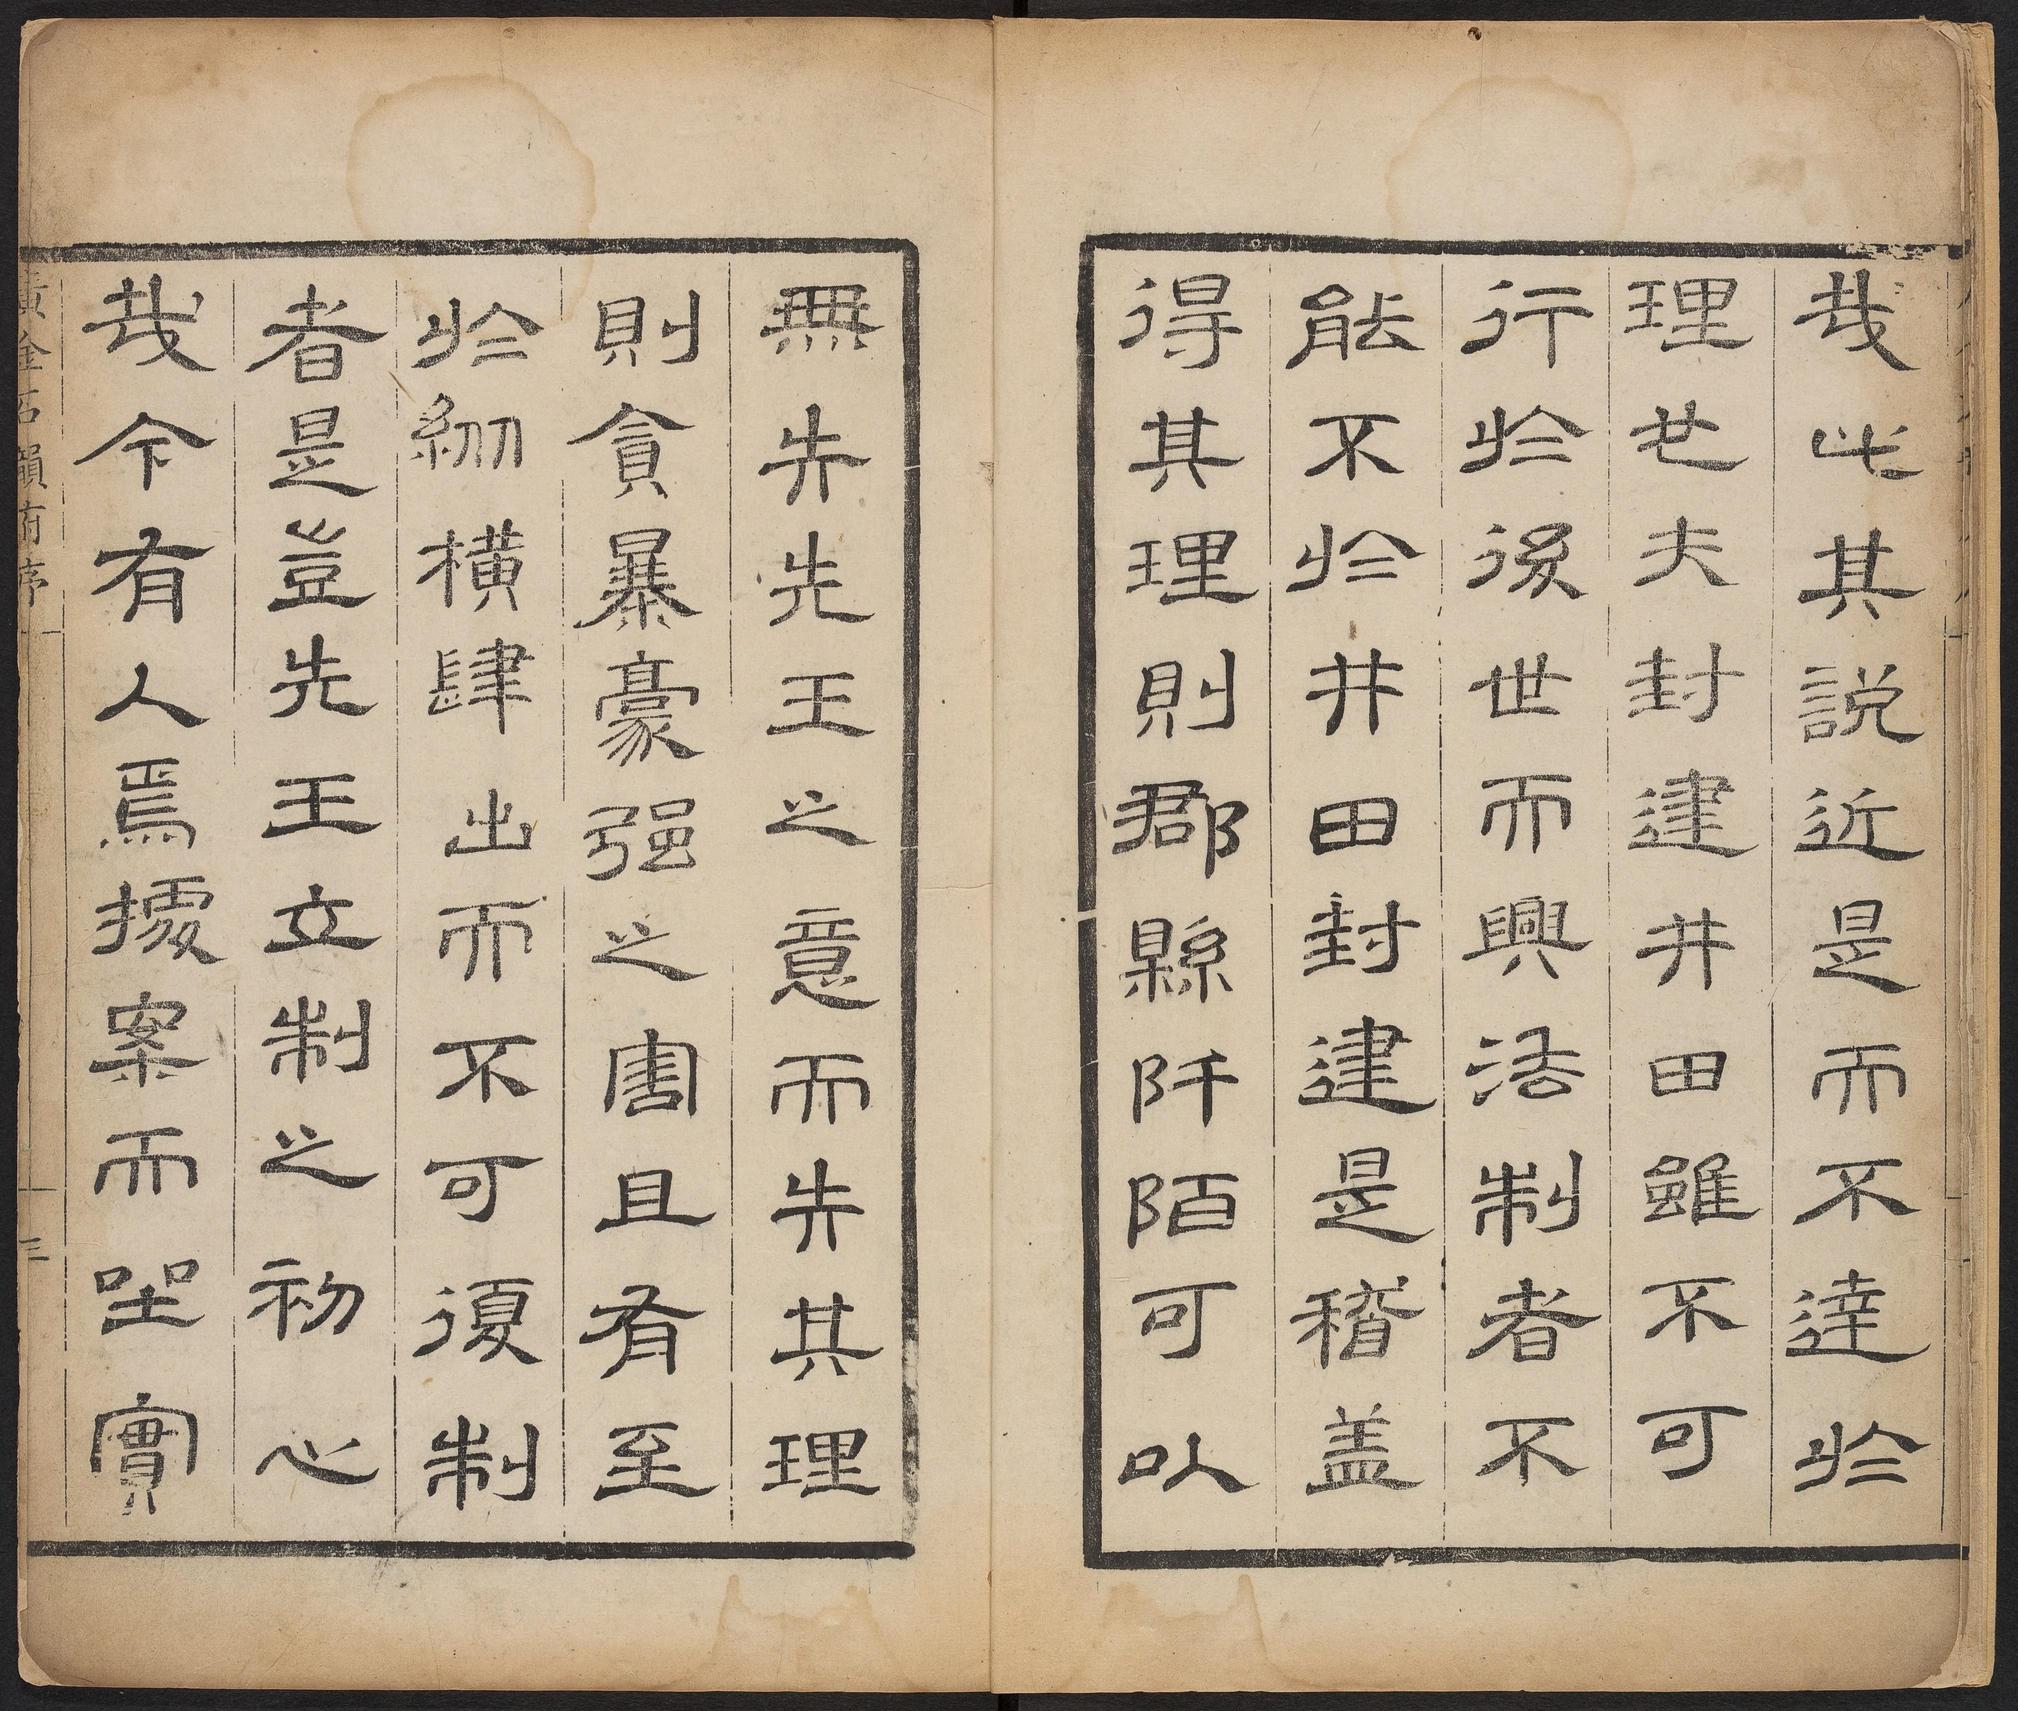 哉此其説近是而不達於
理也夫封建井田雖不可
行於後世而興法制者不
能不於井田封建是稽盖
得其理則郡縣阡陌可以
無失先王之意而失其理
則貪暴豪强之害且有至
於橫肆出而不可復制
者是豈先王立制之初心
哉今有人焉據案而坐實
廣金石韻府序
三